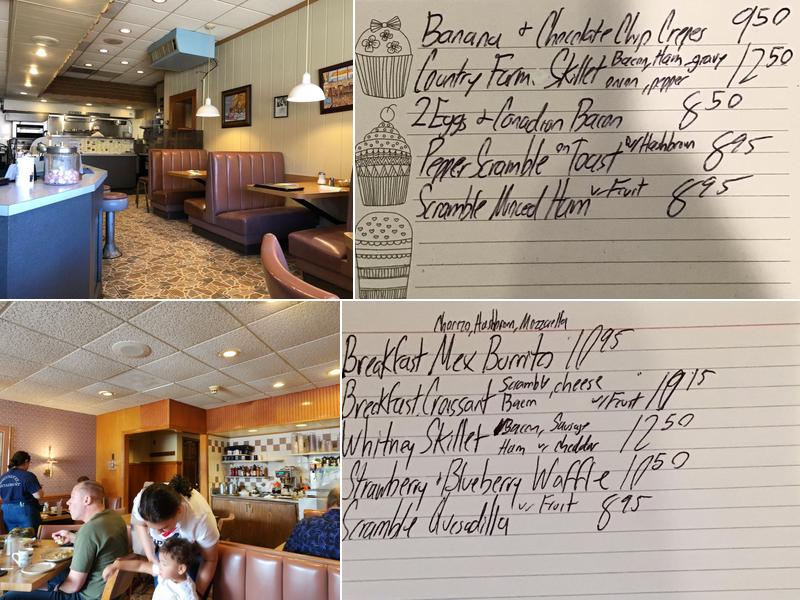 Banana + Chocolate Chip Crepes 9.50
Country Farm Skillet Bacon, Ham, gravy onion, pepper 12.50
2 Eggs + Canadian Bacon 8.50
Pepper Scramble on Toast w/Hashbrown 8.95
Scramble Minced Ham w/ Fruit 8.95
Chorizo, Hashbrown, Mozzarella
Breakfast Mex Burrito 10.95
Breakfast Croissant Scramble, cheese Bacon w/Fruit
Whitney Skillet Bacon, Sausage Ham w/ cheddar 12.50
Strawberry + Blueberry Waffle 10.50
Scramble Quesadilla w/ Fruit 8.95